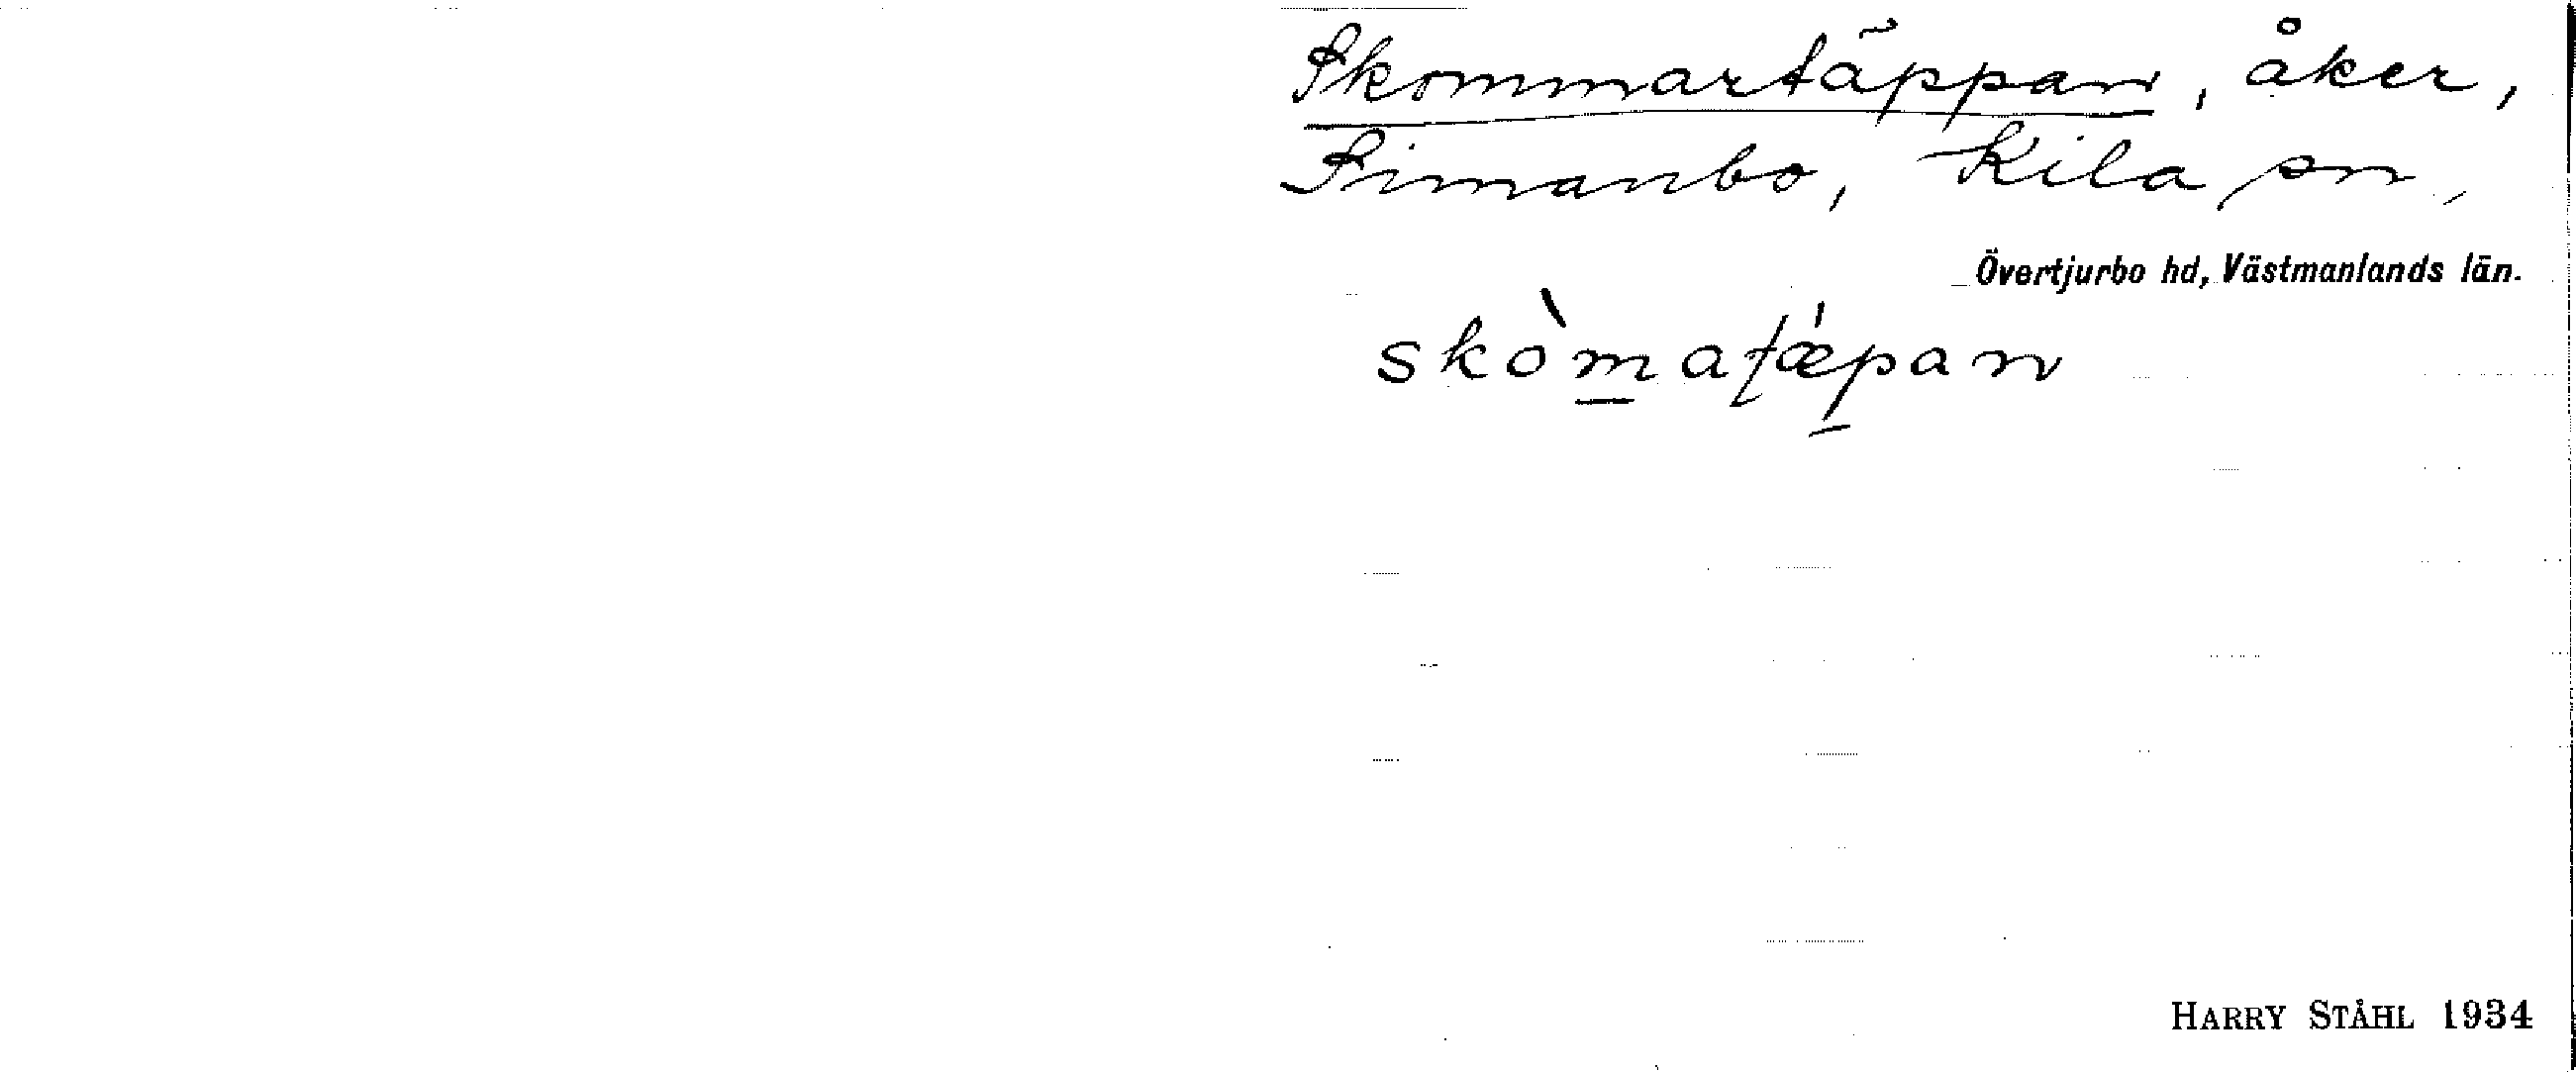 Skommartäppan, åker,
Simanbo, Kila sn,
Övertjurbo hd, Västmanlands län.
skòmatǽpan
HARRY STÅHL 1934